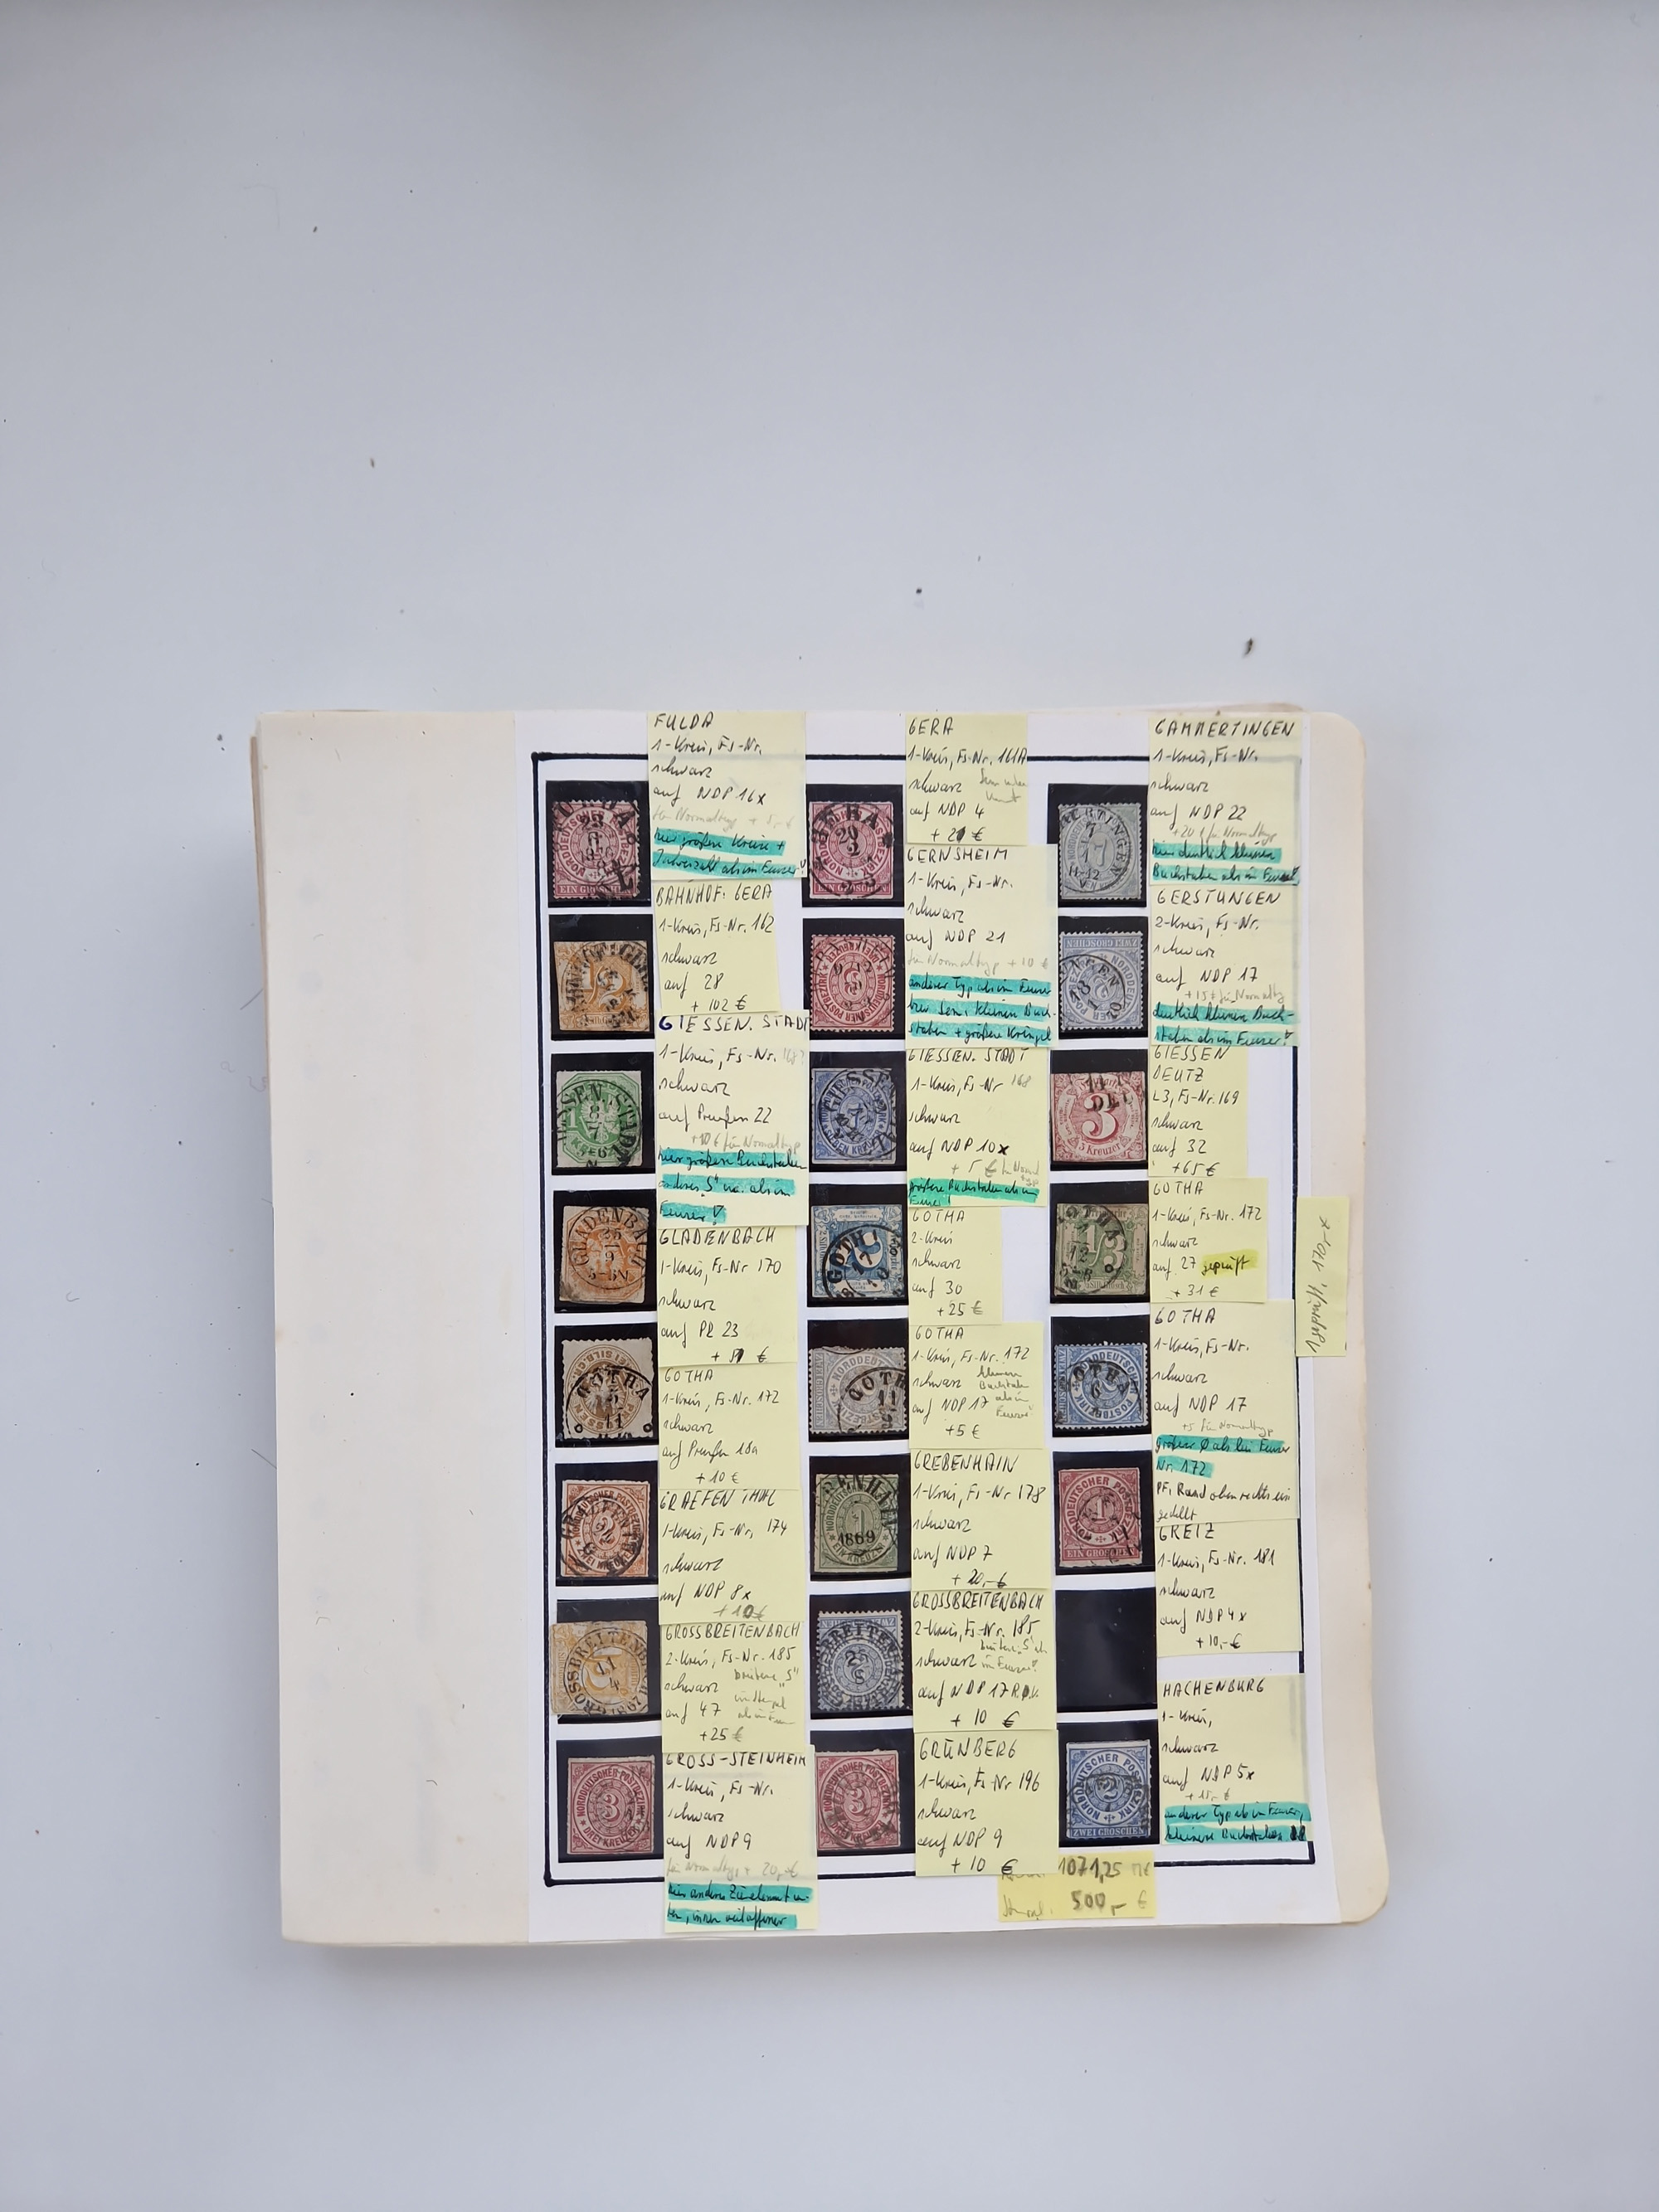 FULDA
1-Kreis, Fs-Nr.
schwarz
auf NDP 16x
für Normaltyp + 5,- €
hier größere Kreise +
Jahreszahl als im Feuser!
GERA
1-Kreis, Fs-Nr. 161A
schwarz
auf NDP 4
+ 20 €
GAMMERTINGEN
1-Kreis, Fs-Nr.
schwarz
auf NDP 22
+20 € für Normaltyp
hier deutlich kleinere
Buchstaben als im Feuser!
BAHNHOF: GERA
1-Kreis, Fs-Nr. 162
schwarz
auf 28
+ 102 €
GERNSHEIM
1-Kreis, Fs-Nr.
schwarz
auf NDP 21
für Normaltyp + 10 €
anderer Typ als im Feuser
kleinere Buch-
staben + größere Krempel
GERSTUNGEN
2-Kreis, Fs-Nr.
schwarz
auf NDP 17
+15 € für Normaltyp
deutlich kleinere Buch-
staben als im Feuser!
GIESSEN. STADT
1-Kreis, Fs-Nr. 168?
schwarz
auf Preußen 22
+10 € für Normaltyp
hier größere Buchstaben
anderes "S" als im
Feuser!
GIESSEN. STADT
1-Kreis, Fs-Nr 168
schwarz
auf NDP 10x
+ 5 €
größere Buchstaben als im
Feuser!
GIESSEN
DEUTZ
L3, Fs-Nr. 169
schwarz
auf 32
+65 €
GLADENBACH
1-Kreis, Fs-Nr 170
schwarz
auf PR 23
€
GOTHA
2-Kreis
schwarz
auf 30
+25 €
GOTHA
1-Kreis, Fs-Nr. 172
schwarz
auf 27 geprüft
+ 31 €
GOTHA
1-Kreis, Fs-Nr. 172
schwarz
auf Preußen 18a
+ 10 €
GOTHA
1-Kreis, Fs-Nr. 172
schwarz kleinere
Buchstaben
auf NDP 17 als im
Feuser!
+5 €
GOTHA
1-Kreis, Fs-Nr.
schwarz
auf NDP 17
+5 für Normaltyp
größer Ø als bei Feuser
Nr. 172
PF: Rand oben rechts ein
gedellt
GRAEFENTHAL
1-Kreis, Fs-Nr. 174
schwarz
auf NDP 8x
+ 10 €
GREBENHAIN
1-Kreis, Fs-Nr 178
schwarz
auf NDP 7
+ 20,- €
GREIZ
1-Kreis, Fs-Nr. 181
schwarz
auf NDP 4x
+ 10,- €
GROSSBREITENBACH
2-Kreis, Fs-Nr. 185
breiteres "S"
schwarz im Stempel
auf 47 als im Feuser
+25 €
GROSSBREITENBACH
2-Kreis, Fs-Nr. 185
breiteres "S" als
schwarz im Feuser!
auf NDP 17
+ 10 €
HACHENBURG
1-Kreis,
schwarz
auf NDP 5x
+ 15,- €
anderer Typ als im Feuser,
kleinere Buchstaben
GROSS-STEINHEIM
1-Kreis, Fs-Nr.
schwarz
auf NDP 9
für Normaltyp + 20,- €
hier anderes Zierelement un-
ten, innen weit offener
GRÜNBERG
1-Kreis, Fs-Nr 196
schwarz
auf NDP 9
+ 10 €
1071,25 M€
500,- €